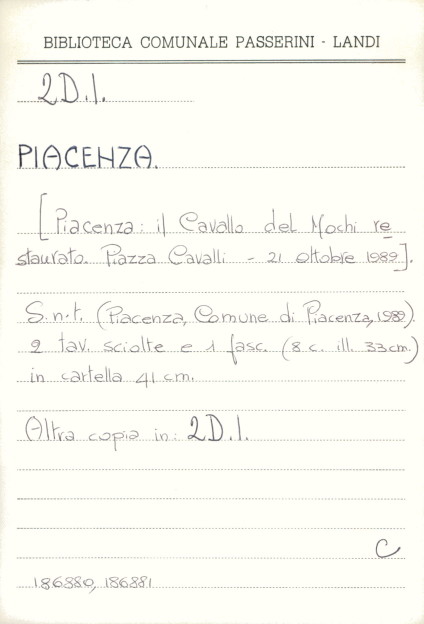 BIBLIOTECA COMUNALE PASSERINI - LANDI
2D.I.
PIACENZA.
[Piacenza: il Cavallo del Mochi re
staurato. Piazza Cavalli - 21 ottobre 1989].
S.n.t. (Piacenza, Comune di Piacenza, 1989).
2 tav. sciolte e 1 fasc. (8 c. ill. 33 cm.)
in cartella 41 cm.
Altra copia in: 2D.I.
C
186880, 186881